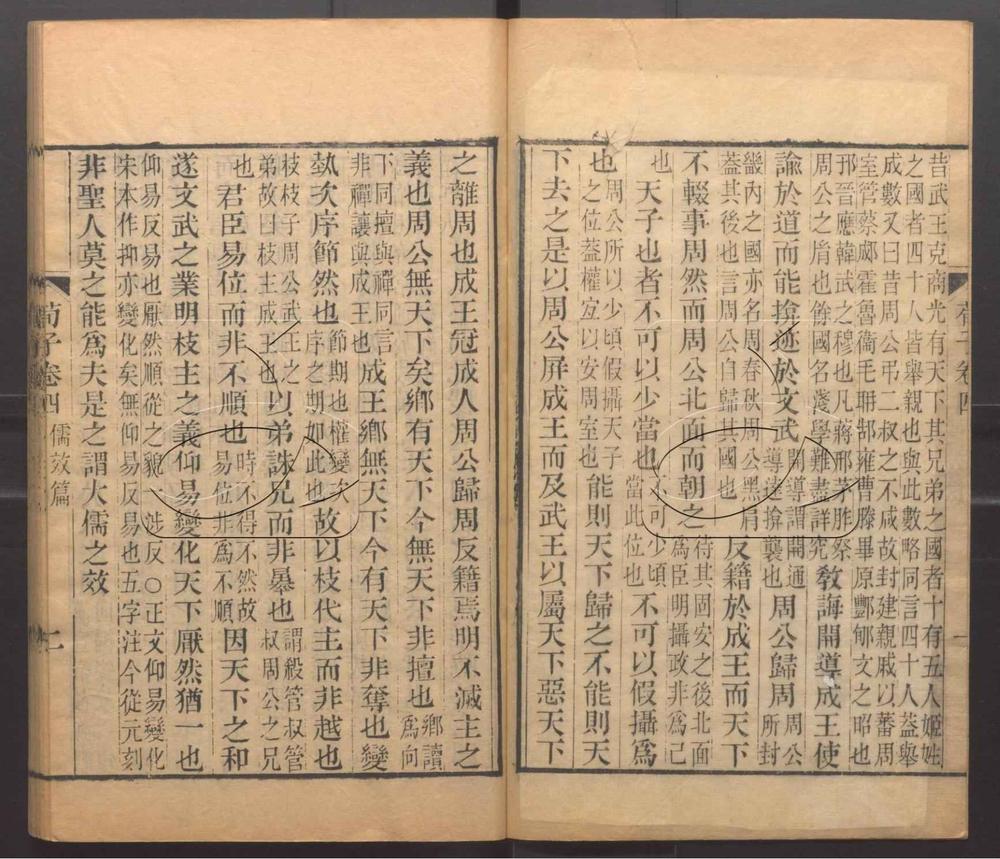 荀子卷四
一
昔武王克商光有天下其兄弟之國者十有五人姬姓
之國者四十人皆舉親也與此數略同言四十人蓋舉
成數又曰昔周公弔二叔之不咸故封建親戚以蕃周
室管蔡郕霍魯衞毛聃郜雍曹滕畢原酆郇文之昭也
邘晉應韓武之穆也凡蔣邢茅胙祭周公之胤也餘國名淺學難盡詳究教誨開導成王使
諭於道而能揜迹於文武開導謂開通導達揜襲也周公歸周周公所封
畿內之國亦名周春秋周公黑肩蓋其後也言周公自歸其國也反籍於成王而天下
不輟事周然而周公北面而朝之待其固安之後北面爲臣明攝政非爲己
也天子也者不可以少當也不可少頃當此位也不可以假攝爲
也周公所以少頃假攝天子之位蓋權宜以安周室也能則天下歸之不能則天
下去之是以周公屏成王而及武王以屬天下惡天下
之離周也成王冠成人周公歸周反籍焉明不滅主之
義也周公無天下矣鄉有天下今無天下非擅也鄉讀爲向
下同擅與禪同言非禪讓與成王也成王鄉無天下今有天下非奪也變
埶次序節然也節期也權變次序之期如此也故以枝代主而非越也
枝枝子周公武王之弟故曰枝主成王也以弟誅兄而非暴也謂殺管叔管叔周公之兄
也君臣易位而非不順也時不得不然故易位非爲不順因天下之和
遂文武之業明枝主之義仰易變化天下厭然猶一也
仰易反易也厭然順從之貌一涉反○正文仰易變化
宋本作抑亦變化矣無仰易反易也五字注今從元刻
非聖人莫之能爲夫是之謂大儒之效
荀子卷四 儒效篇
二